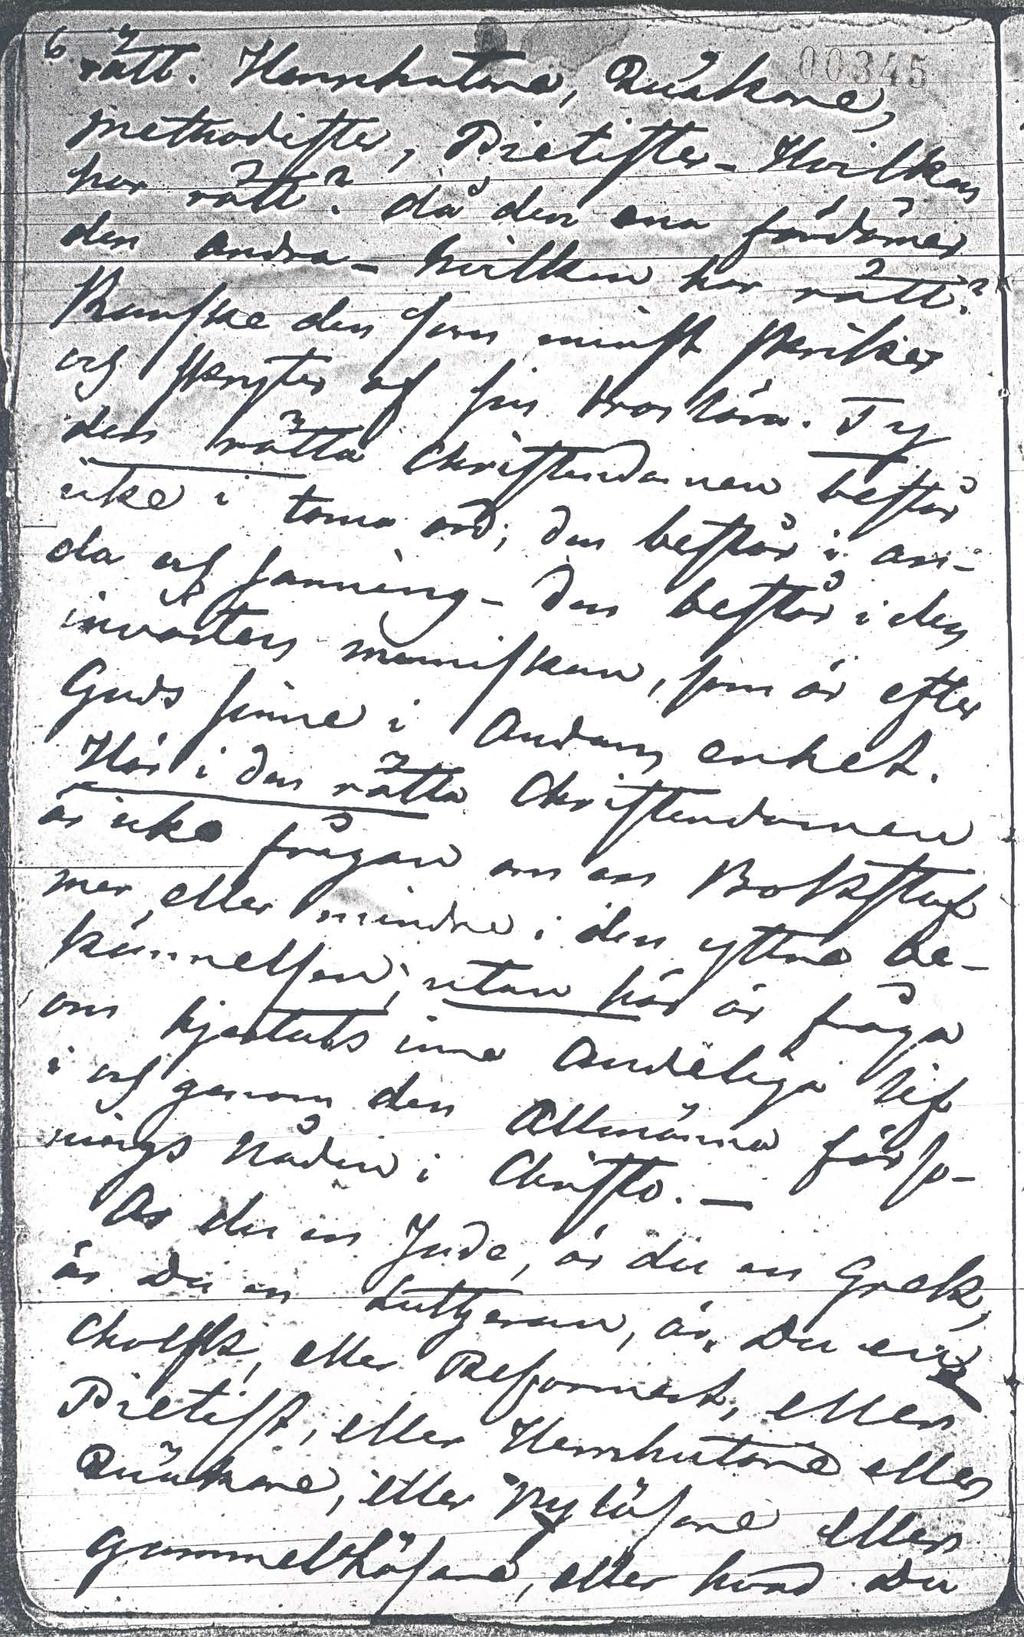 6 00345
rätt. Herrnhutare, Quäkare,
Methodister, Pietister – Hvilken
har rätt? då den ena fördömer
den andra – hvilken har rätt?
Kanske den som minst skriker
och skryter af sin tros lära. Ty
den rätta Christendomen består
icke i toma ord; den består i an-
da och sanning – den består i den
invärtes menniskan, som är efter
Guds sinne i Andans enhet.
Här i den rätta Christendomen
är icke frågan om en Bokstaf
mer, eller mindre i den yttre be-
kännelsen; utan här är fråga
om hjertats inre Andeliga lif
i och genom den Allmänna förso-
nings Nåden i Christo. —
Är du en Jude, är du en Grek,
är Du en Lutheran, är Du en
eller Reformert, eller
Pietist, eller Herrnhutare eller
Quäkare, eller Nyläsare eller
gammelläsare, eller hvad Du